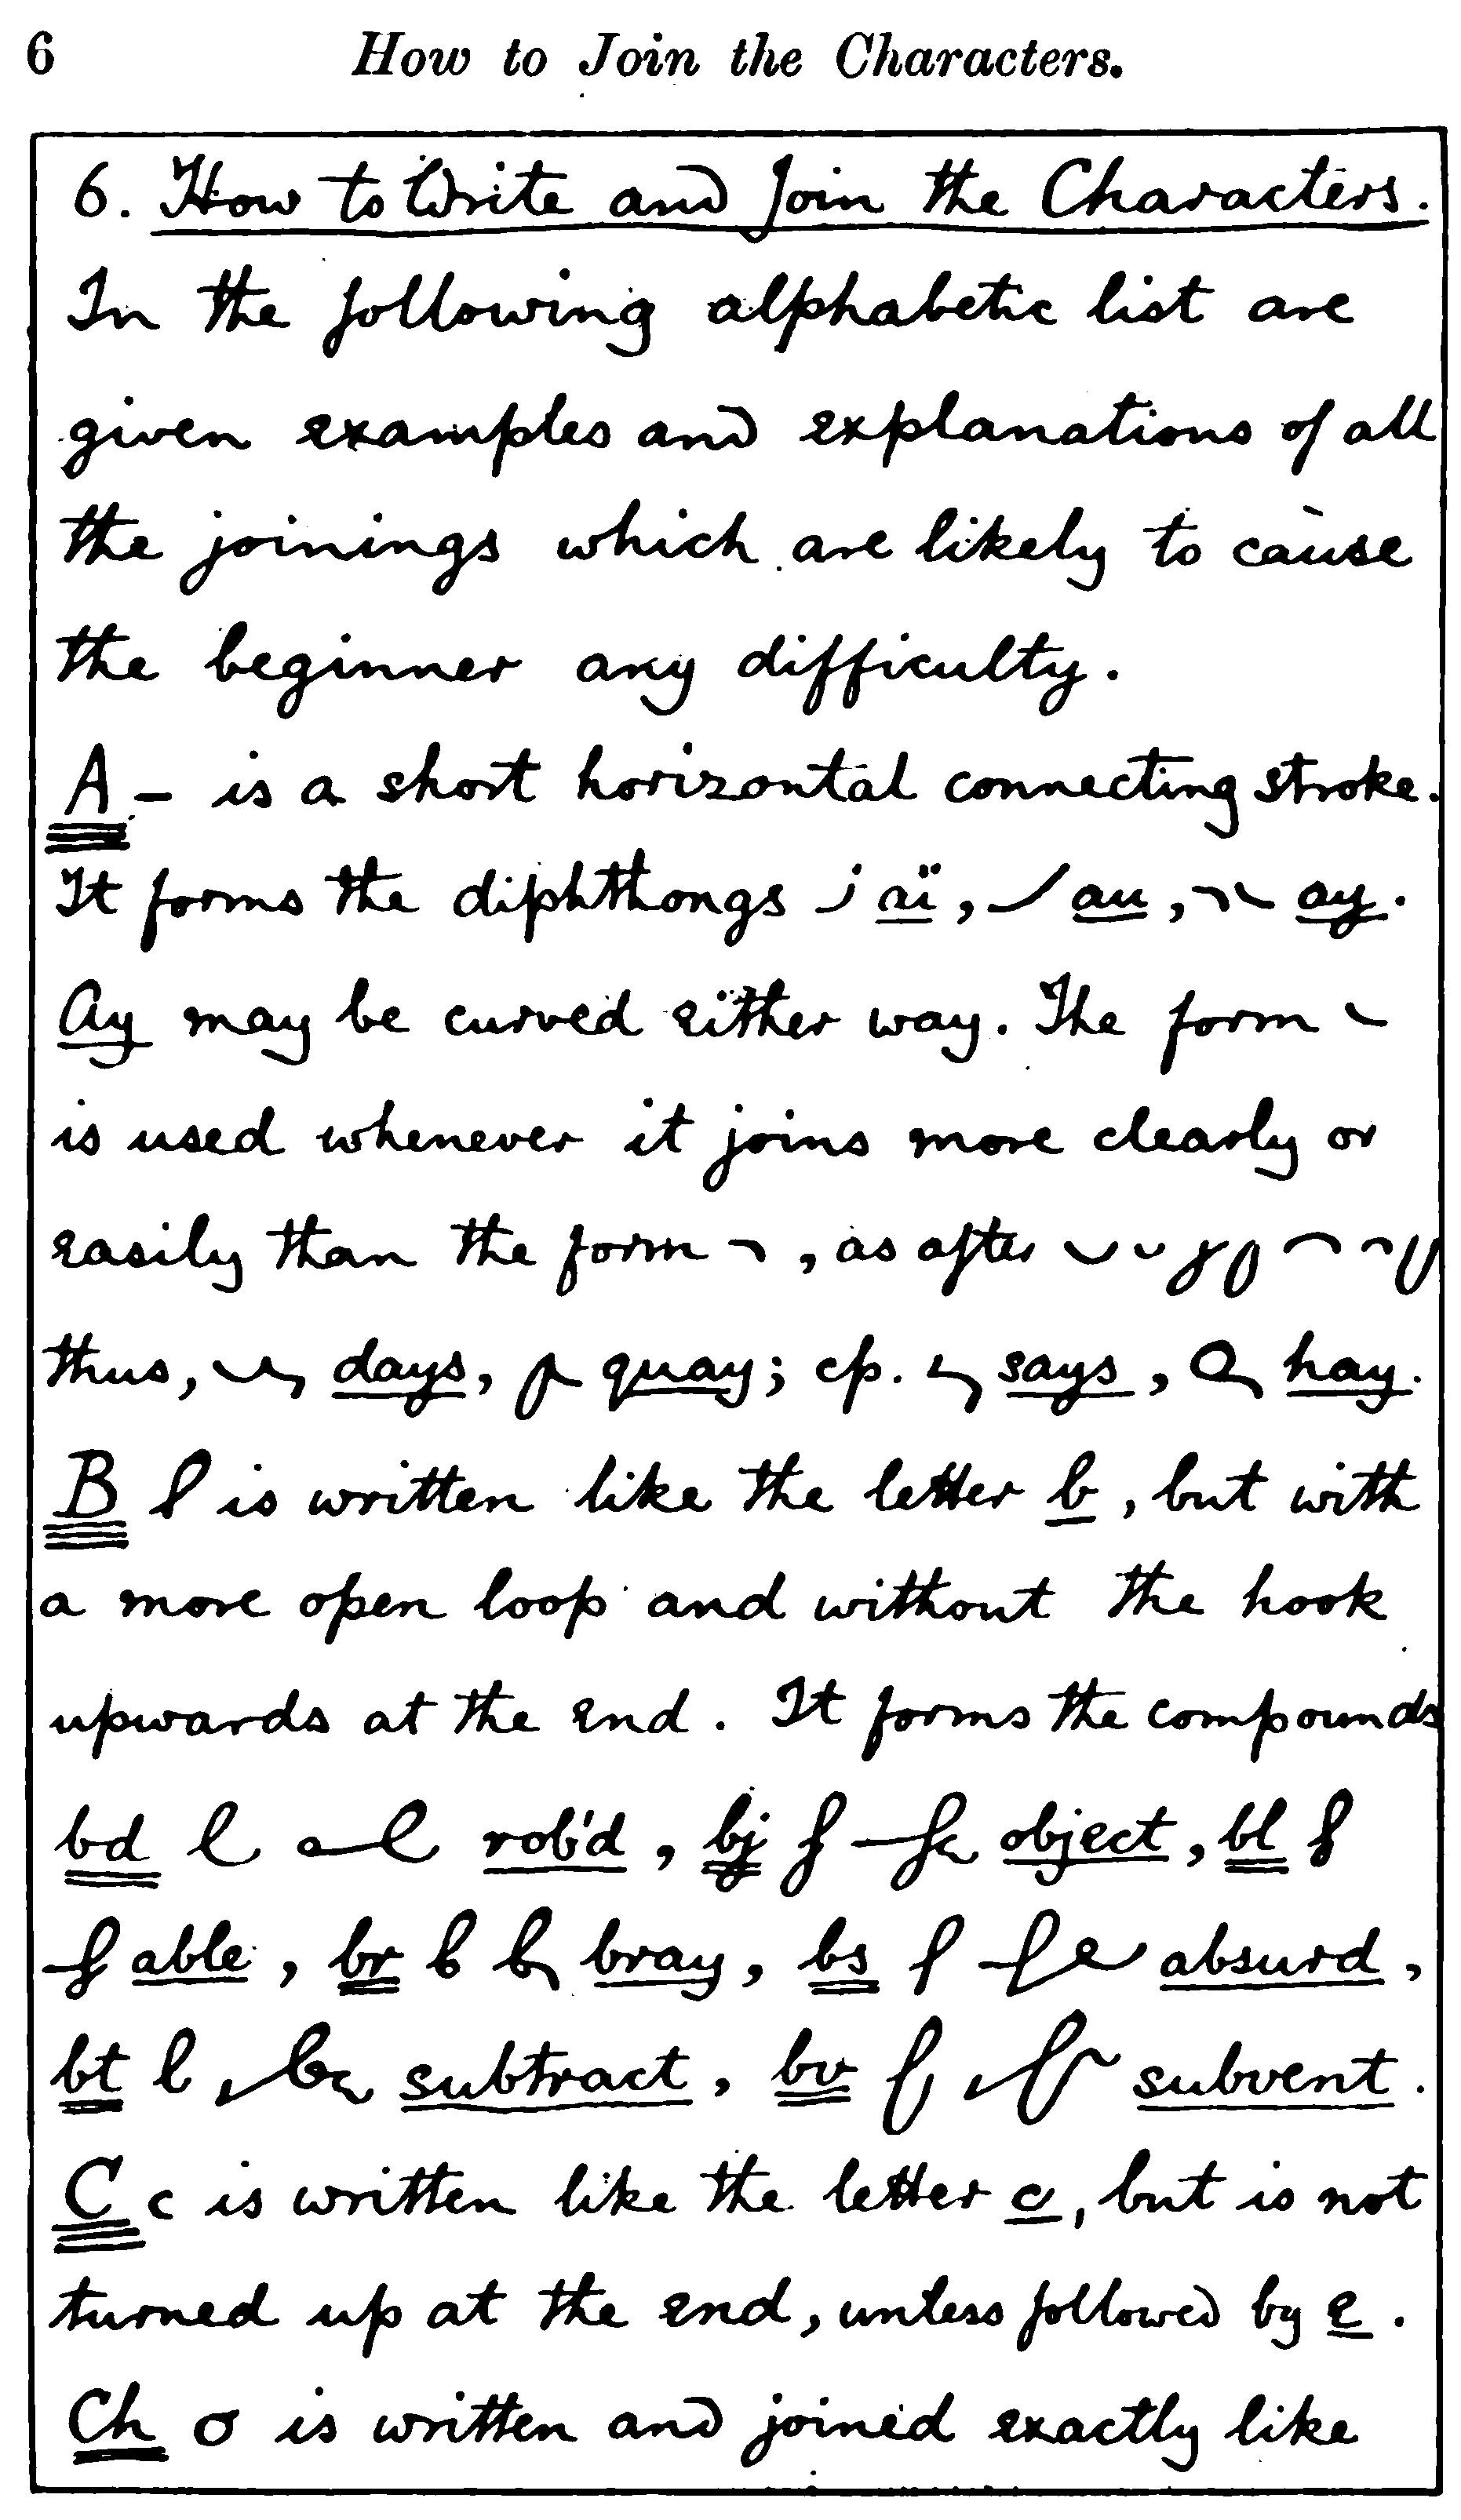 6 How to Join the Characters.
6. How to Write and Join the Characters.
In the following alphabetic list are
given examples and explanations of all
the joinings which are likely to cause
the beginner any difficulty.
A – is a short horizontal connecting stroke.
It forms the diphthongs aï, au, ay.
Ay may be curved either way. The form
is used whenever it joins more clearly or
easily than the form , as after
thus, days, quay; cp. says, hay.
B is written like the letter b, but with
a more open loop and without the hook
upwards at the end. It forms the compounds
bd rob'd, bj object, bl
able, br bray, bs absurd,
bt subtract, bv subvent.
C c is written like the letter c, but is not
turned up at the end, unless followed by e.
Ch is written and joined exactly like